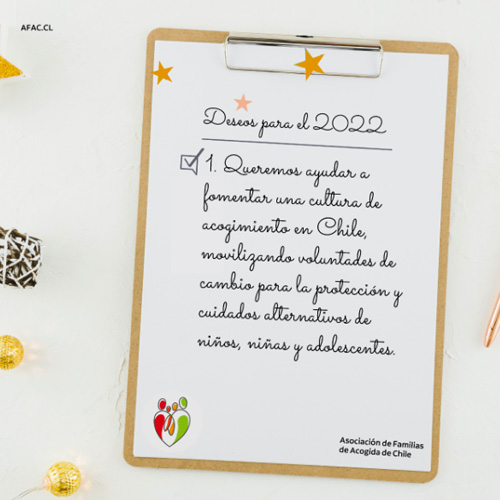 AFAC.CL
Deseos para el 2022
1. Queremos ayudar a
fomentar una cultura de
acogimiento en Chile,
movilizando voluntades de
cambio para la protección y
cuidados alternativos de
niños, niñas y adolescentes.
Asociación de Familias
de Acogida de Chile